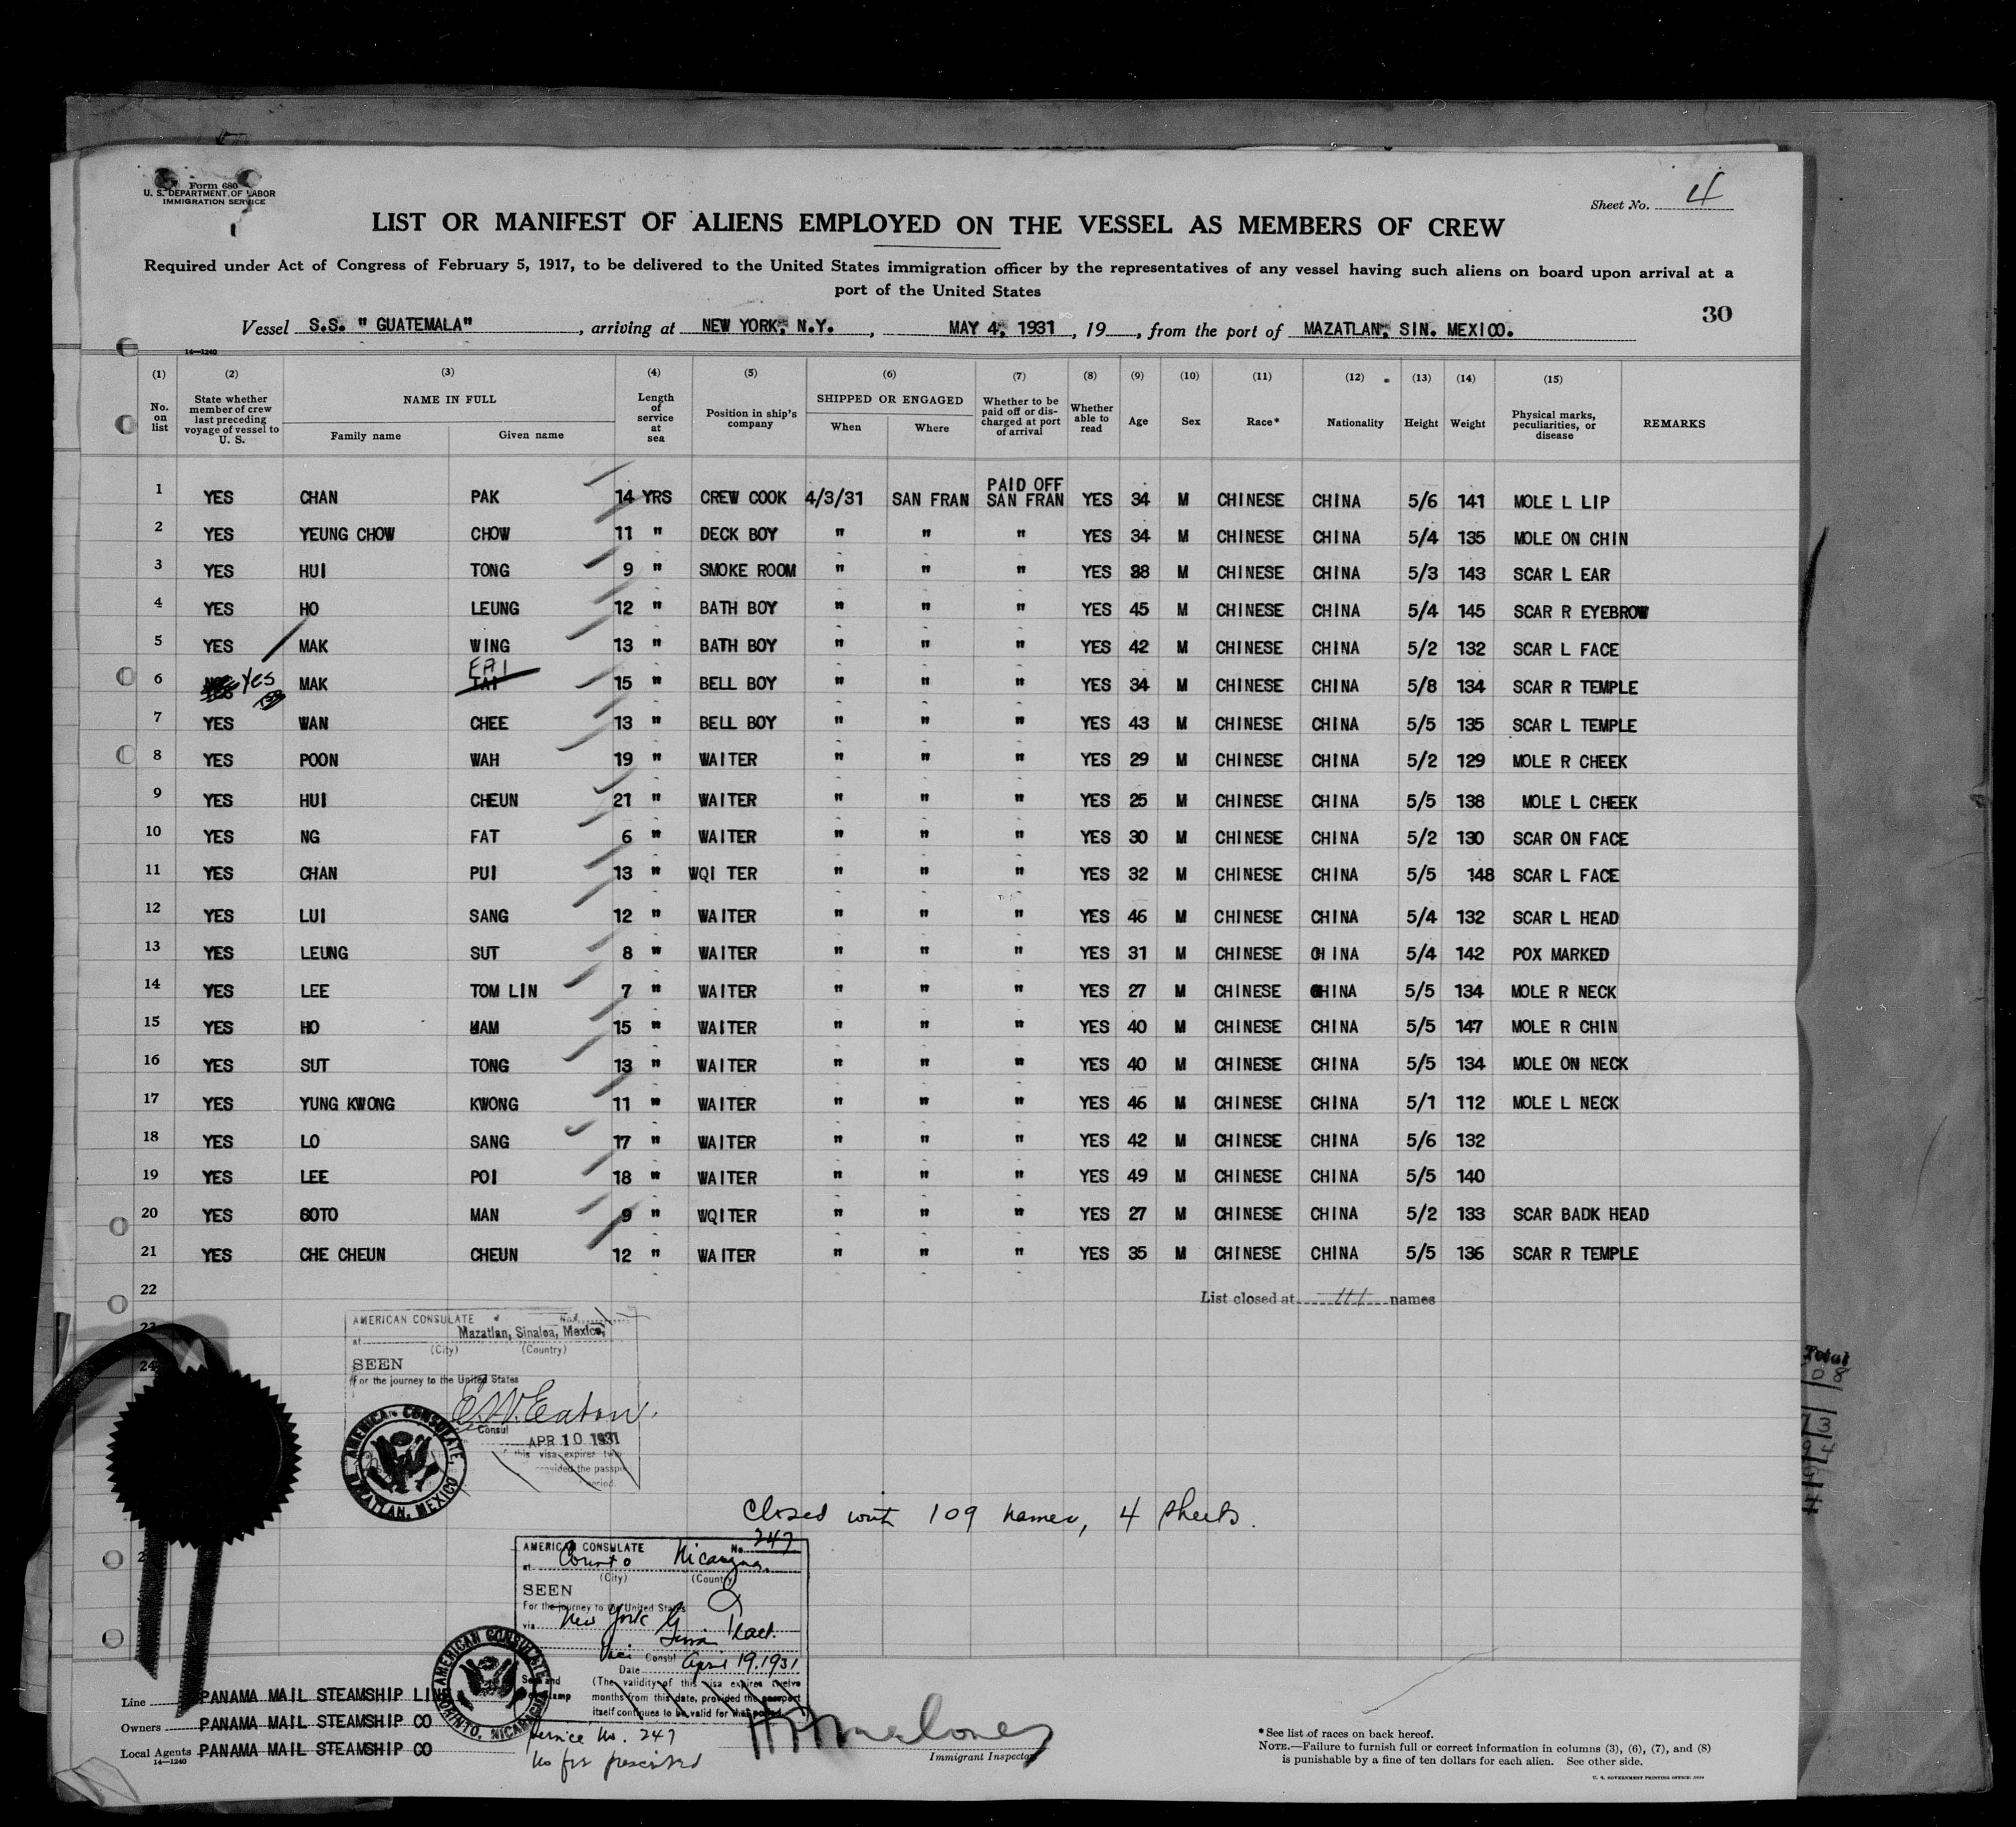 Form 680
U. S. DEPARTMENT OF LABOR
IMMIGRATION SERVICE
Sheet No. 4
LIST OR MANIFEST OF ALIENS EMPLOYED ON THE VESSEL AS MEMBERS OF CREW
Required under Act of Congress of February 5, 1917, to be delivered to the United States immigration officer by the representatives of any vessel having such aliens on board upon arrival at a
port of the United States
30
Vessel S.S. " GUATEMALA", arriving at NEW YORK, N.Y., MAY 4, 1931, 19, from the port of MAZATLAN, SIN. MEXICO.
14—1240
(1) (2) (3) (4) (5) (6) (7) (8) (9) (10) (11) (12) (13) (14) (15)
No. on list State whether member of crew last preceding voyage of vessel to U. S. NAME IN FULL Family name Given name Length of service at sea Position in ship's company SHIPPED OR ENGAGED When Where Whether to be paid off or discharged at port of arrival Whether able to read Age Sex Race* Nationality Height Weight Physical marks, peculiarities, or disease REMARKS
1 YES CHAN PAK 14 YRS CREW COOK 4/3/31 SAN FRAN PAID OFF SAN FRAN YES 34 M CHINESE CHINA 5/6 141 MOLE L LIP
2 YES YEUNG CHOW CHOW 11 " DECK BOY " " " YES 34 M CHINESE CHINA 5/4 135 MOLE ON CHIN
3 YES HUI TONG 9 " SMOKE ROOM " " " YES 38 M CHINESE CHINA 5/3 143 SCAR L EAR
4 YES HO LEUNG 12 " BATH BOY " " " YES 45 M CHINESE CHINA 5/4 145 SCAR R EYEBROW
5 YES MAK WING 13 " BATH BOY " " " YES 42 M CHINESE CHINA 5/2 132 SCAR L FACE
6 Yes MAK FAI TAI 15 " BELL BOY " " " YES 34 M CHINESE CHINA 5/8 134 SCAR R TEMPLE
7 YES WAN CHEE 13 " BELL BOY " " " YES 43 M CHINESE CHINA 5/5 135 SCAR L TEMPLE
8 YES POON WAH 19 " WAITER " " " YES 29 M CHINESE CHINA 5/2 129 MOLE R CHEEK
9 YES HUI CHEUN 21 " WAITER " " " YES 25 M CHINESE CHINA 5/5 138 MOLE L CHEEK
10 YES NG FAT 6 " WAITER " " " YES 30 M CHINESE CHINA 5/2 130 SCAR ON FACE
11 YES CHAN PUI 13 " WQI TER " " " YES 32 M CHINESE CHINA 5/5 148 SCAR L FACE
12 YES LUI SANG 12 " WAITER " " " YES 46 M CHINESE CHINA 5/4 132 SCAR L HEAD
13 YES LEUNG SUT 8 " WAITER " " " YES 31 M CHINESE CHINA 5/4 142 POX MARKED
14 YES LEE TOM LIN 7 " WAITER " " " YES 27 M CHINESE CHINA 5/5 134 MOLE R NECK
15 YES HO MAM 15 " WAITER " " " YES 40 M CHINESE CHINA 5/5 147 MOLE R CHIN
16 YES SUT TONG 13 " WAITER " " " YES 40 M CHINESE CHINA 5/5 134 MOLE ON NECK
17 YES YUNG KWONG KWONG 11 " WAITER " " " YES 46 M CHINESE CHINA 5/1 112 MOLE L NECK
18 YES LO SANG 17 " WAITER " " " YES 42 M CHINESE CHINA 5/6 132
19 YES LEE POI 18 " WAITER " " " YES 49 M CHINESE CHINA 5/5 140
20 YES SOTO MAN 9 " WQITER " " " YES 27 M CHINESE CHINA 5/2 133 SCAR BADK HEAD
21 YES CHE CHEUN CHEUN 12 " WAITER " " " YES 35 M CHINESE CHINA 5/5 136 SCAR R TEMPLE
22
List closed at 111 names
23
24
AMERICAN CONSULATE
at Mazatlan, Sinaloa, Mexico,
(City) (Country)
SEEN
For the journey to the United States
Eaton
Consul
APR 10 1931
this visa expires
provided the
period.
AMERICAN CONSULATE, MAZATLAN, MEXICO
Total
Closed with 109 names, 4 sheets.
AMERICAN CONSULATE No. 247
at Corinto Nicaragua.
(City) (Country)
SEEN
For the journey to the United States
via New York
Vice Consul
Date April 19, 1931
(The validity of this visa expires twelve
months from this date, provided the passport
itself continues to be valid for that period.
AMERICAN CONSULATE CORINTO, NICARAGUA
Service No. 247
No fee prescribed
Line PANAMA MAIL STEAMSHIP LINE
Owners PANAMA MAIL STEAMSHIP CO
Local Agents PANAMA MAIL STEAMSHIP CO
14—1240
Immigrant Inspector
*See list of races on back hereof.
NOTE.—Failure to furnish full or correct information in columns (3), (6), (7), and (8)
is punishable by a fine of ten dollars for each alien. See other side.
U. S. GOVERNMENT PRINTING OFFICE